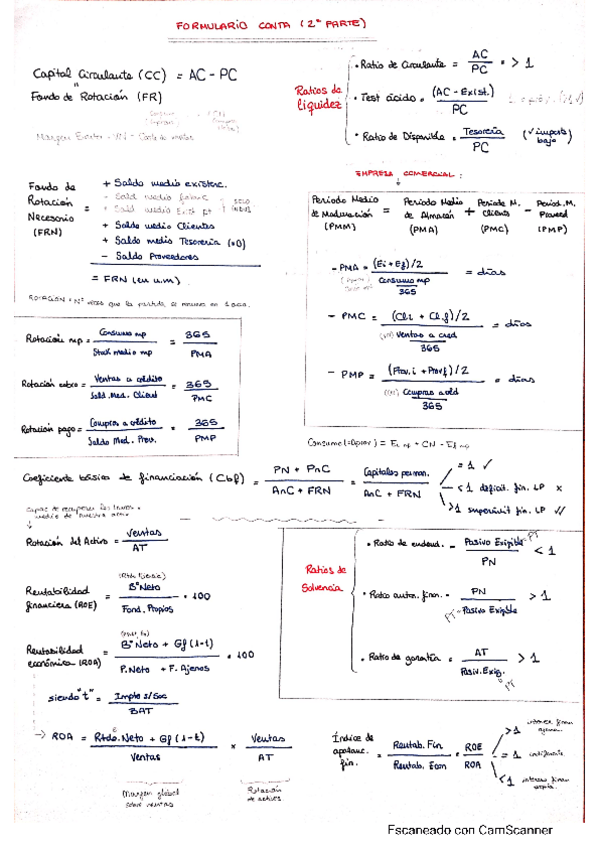 FORMULARIO CONTA (2ª PARTE)
Capital Circulante (CC) = AC - PC
Fondo de Rotación (FR)
Ratios de liquidez
• Ratio de Circulante = AC / PC > 1
• Test ácido = (AC - Exist.) / PC
• Ratio de Disponible = Tesorería / PC (√ importe bajo)
Fondo de Rotación Necesario (FRN) =
+ Saldo medio existenc.
+ Saldo medio Clientes
+ Saldo medio Tesorería (+D)
- Saldo Proveedores
= FRN (en u.m)
EMPRESA COMERCIAL:
Periodo Medio de Maduración (PMM) = Periodo Medio de Almacén (PMA) + Periodo M. Clients (PMC) - Period. M. Proveed (PMP)
- PMA = (Ei + Ef) / 2 / Consumo mp / 365 = días
- PMC = (Cli + Clf) / 2 / Ventas a cred / 365 = días
- PMP = (Prov.i + Provf) / 2 / Compras a cd / 365 = días
ROTACIÓN = Nº veces que la partida se renueva en 1 año.
Rotación mp = Consumo mp / Stock medio mp = 365 / PMA
Rotación cobro = Ventas a crédito / Sald. Med. Client = 365 / PMC
Rotación pago = Compras a crédito / Saldo Med. Prov. = 365 / PMP
Coeficiente básico de financiación (Cbf) = PN + PnC / AnC + FRN = Capitales perman. / AnC + FRN
= 1 ✓
< 1 deficit. fin. LP x
> 1 superávit fin. LP ✓✓
Rotación del Activo = Ventas / AT
Rentabilidad financiera (ROE) = Bº Neto / Fond. Propios · 100
Rentabilidad económica (ROA) = Bº Neto + Gf (1-t) / P. Neto + F. Ajenos · 100
siendo "t" = Impto s/Soc / BAT
→ ROA = Rtdo. Neto + Gf (1-t) / Ventas x Ventas / AT
Margen global sobre ventas
Rotación de activos
Ratios de Solvencia
• Ratio de endeud. = Pasivo Exigible PT / PN < 1
• Ratio auton. finan. = PN / PT = Pasivo Exigible > 1
• Ratio de garantía = AT / Pasiv. Exig. PT > 1
Índice de apalanc. fin. = Rentab. Fin / Rentab. Econ = ROE / ROA
> 1
= 1 indiferente
< 1
Escaneado con CamScanner